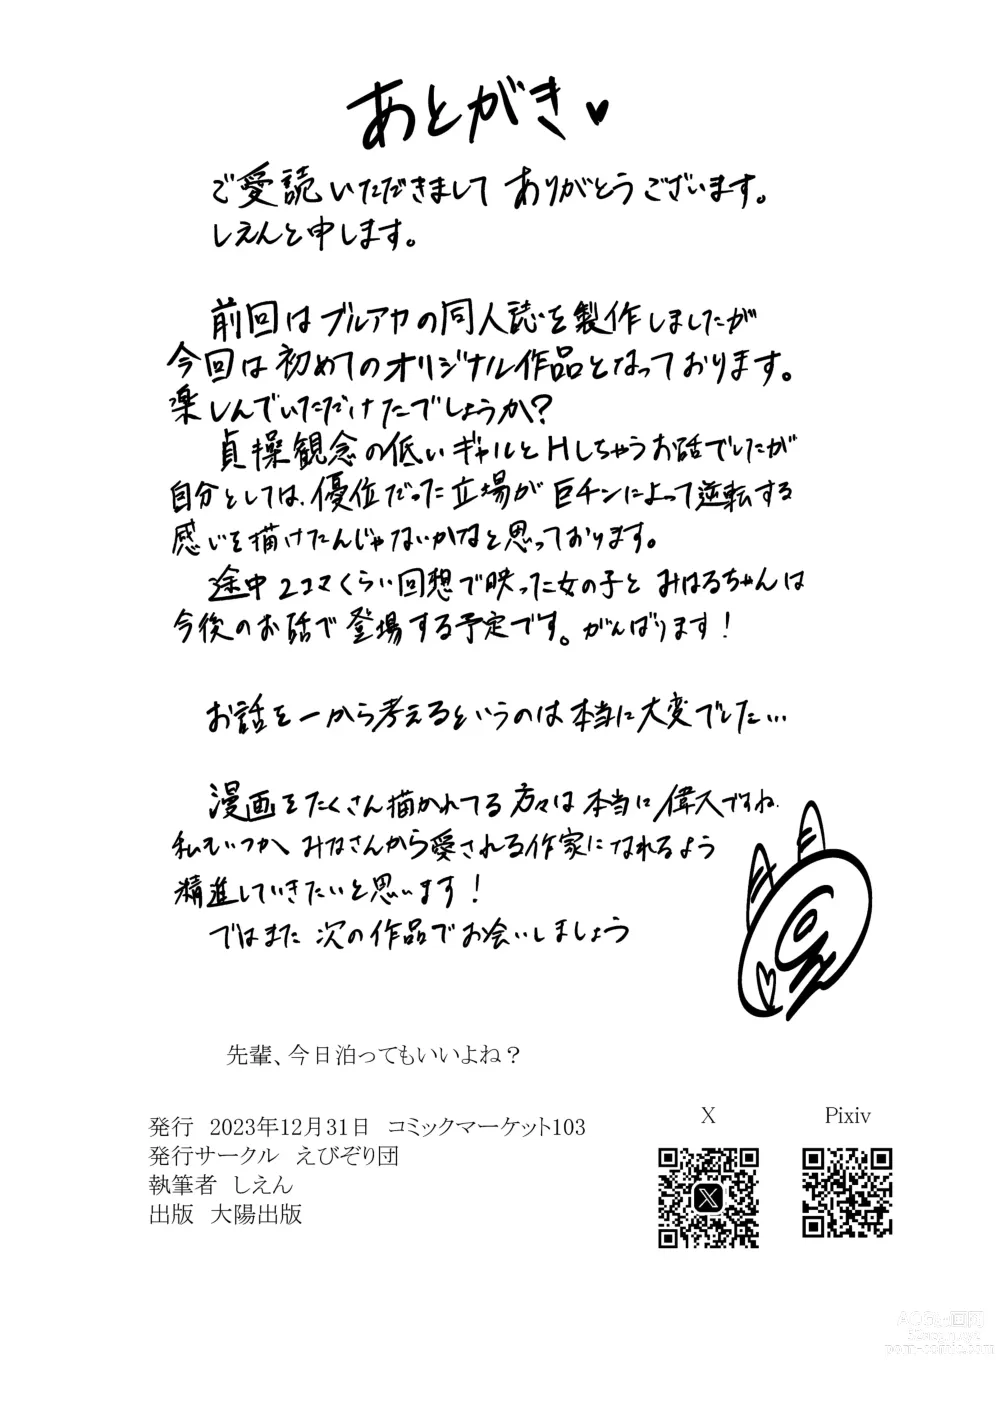 あとがき♥
ご愛読いただきましてありがとうございます。
しえんと申します。
前回はブルアカの同人誌を製作しましたが
今回は初めてのオリジナル作品となっております。
楽しんでいただけたでしょうか?
貞操観念の低いギャルとHしちゃうお話でしたが
自分としては、優位だった立場が巨チンによって逆転する
感じを描けたんじゃないかなと思っております。
途中2コマくらい回想で映った女の子とみはるちゃんは
今後のお話で登場する予定です。がんばります!
お話を一から考えるというのは本当に大変でした…
漫画をたくさん描かれてる方々は本当に偉人ですね.
私もいつか、みなさんから愛される作家になれるよう
精進していきたいと思います!
ではまた次の作品でお会いしましょう
先輩、今日泊ってもいいよね?
発行 2023年12月31日 コミックマーケット103
発行サークル えびぞり団
執筆者 しえん
出版 大陽出版
X
Pixiv
porn-comic.com